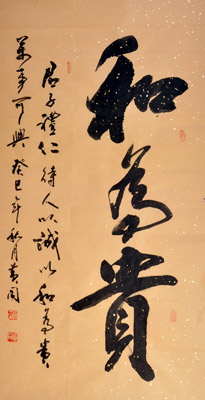 和為貴
君子禮仁待人以誠以和為貴
萬事可興癸巳年秋月黃開